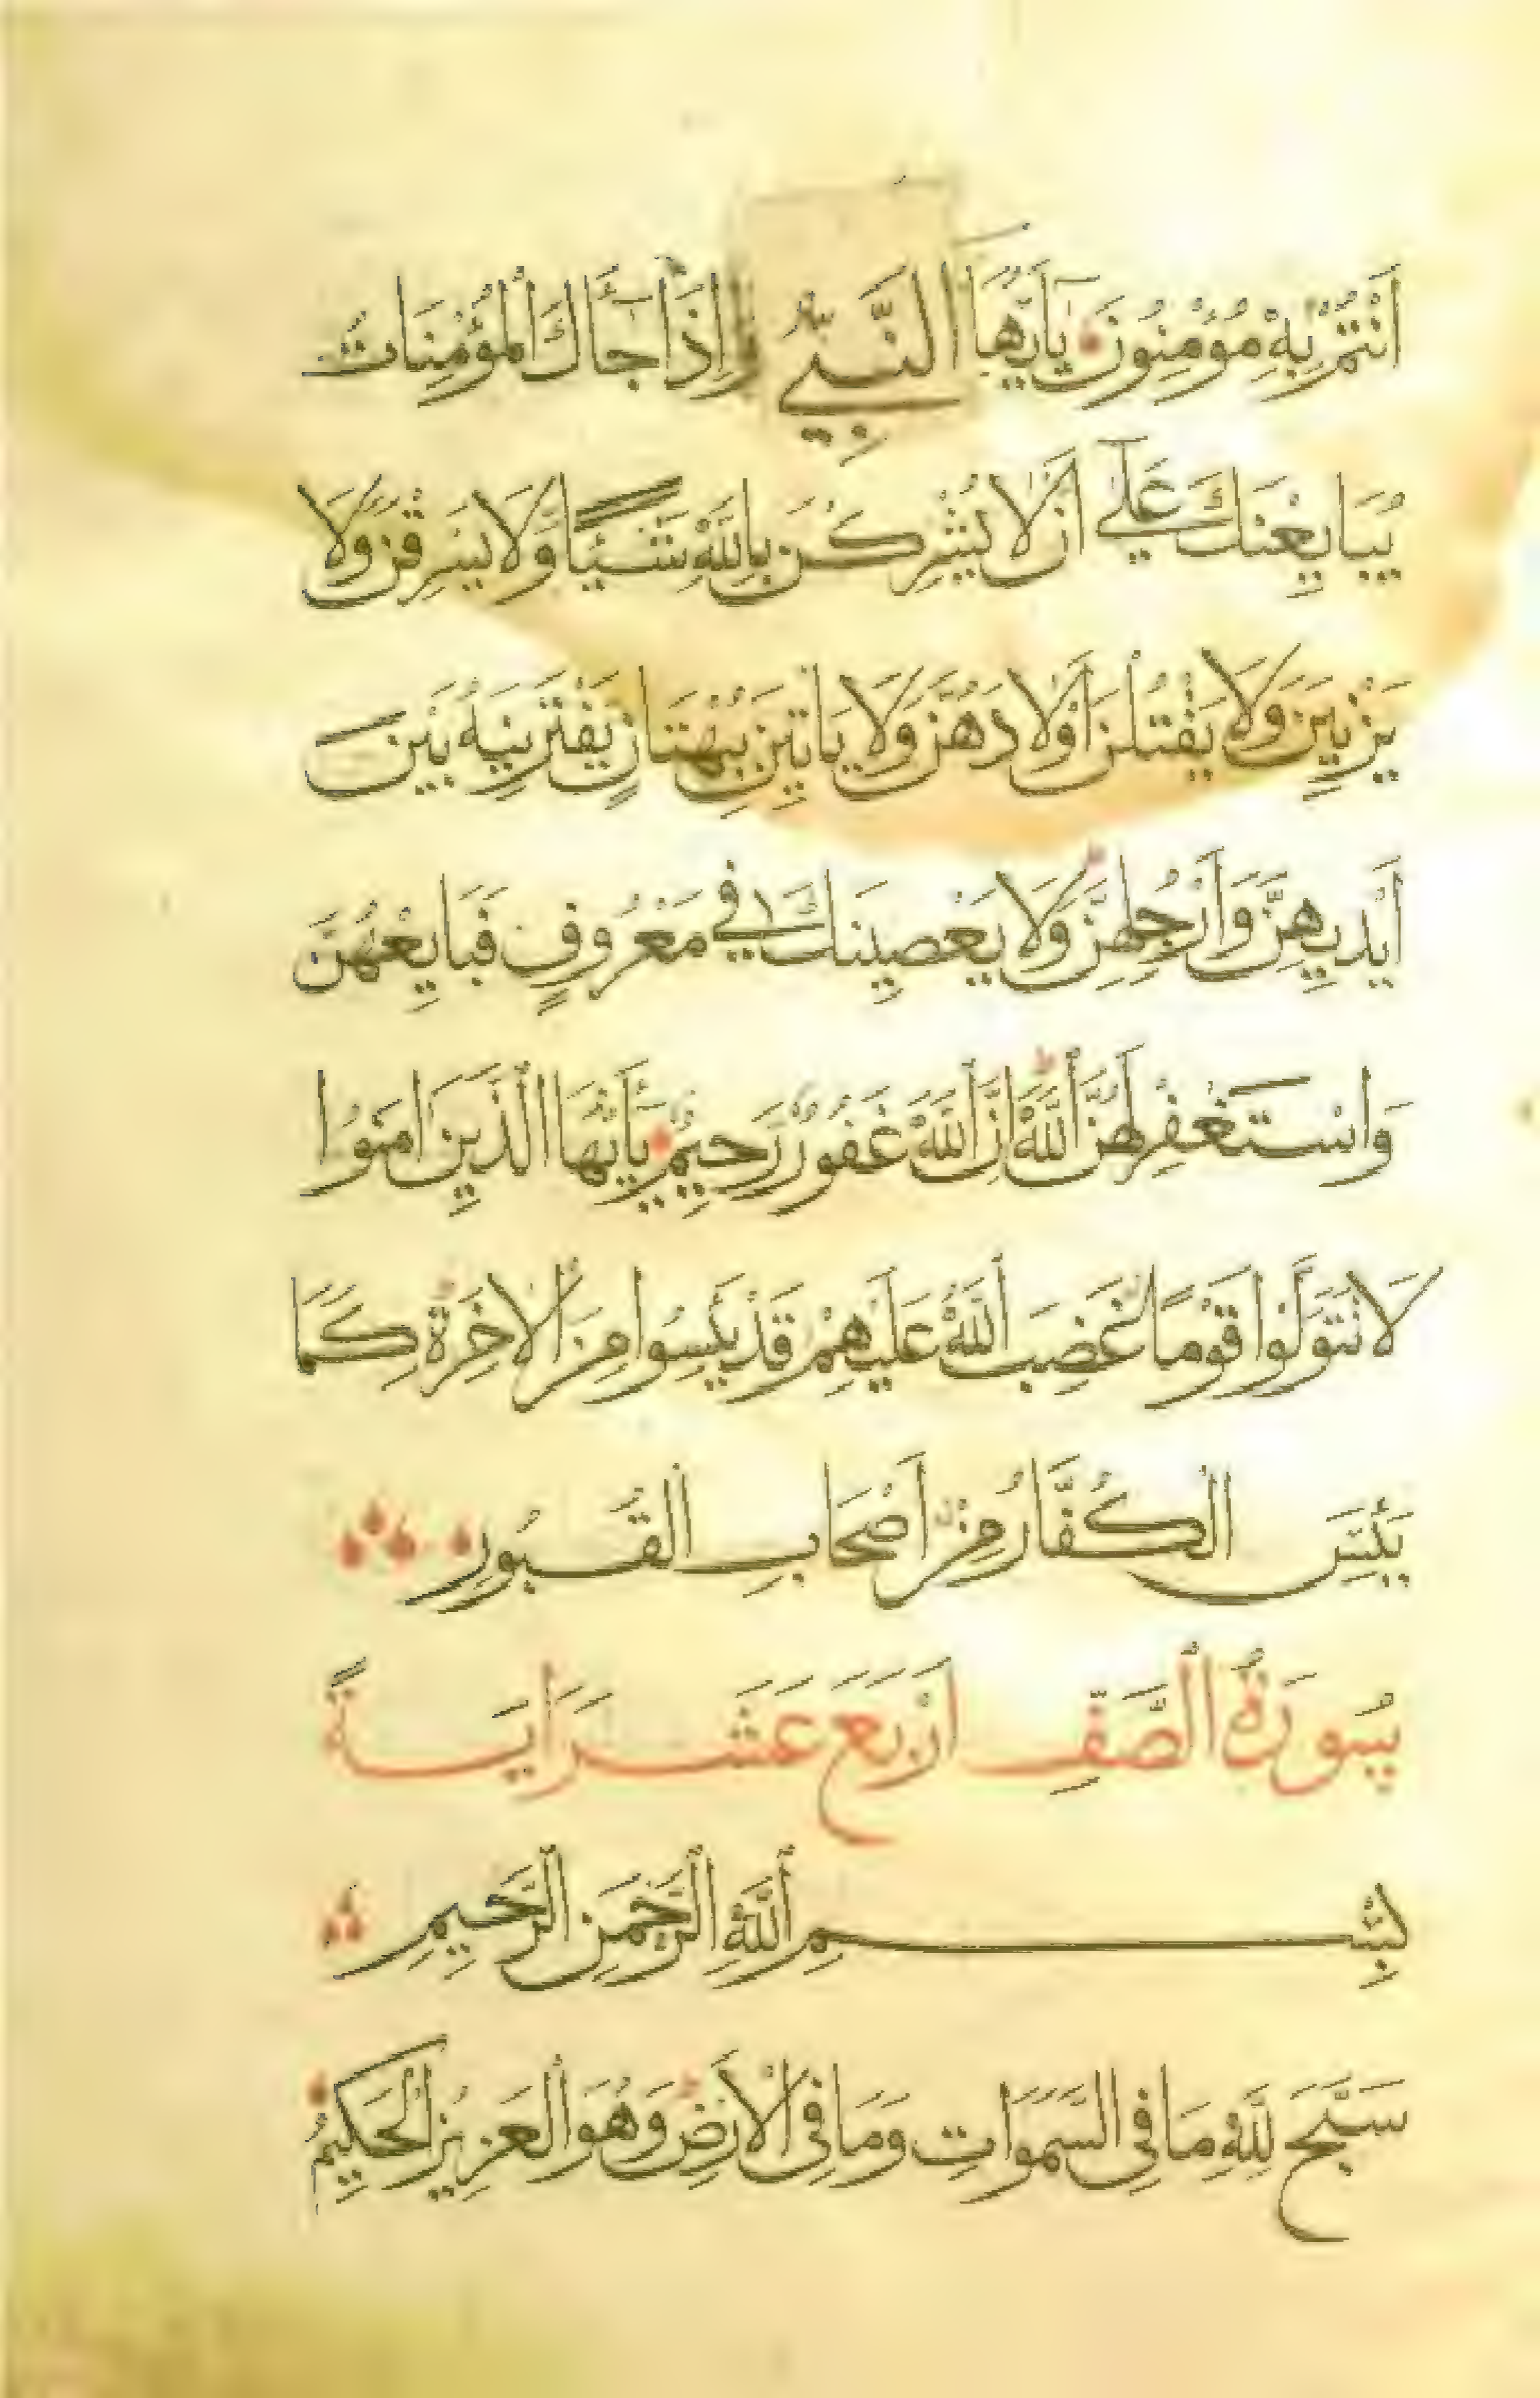 اَنْتُمْ بِهِ مُؤْمِنُونَ يَاأَيُّهَا النَّبِيُّ إِذَا جَاءَكَ الْمُؤْمِنَاتُ
يُبَايِعْنَكَ عَلَى أَنْ لَا يُشْرِكْنَ بِاللَّهِ شَيْئًا وَلَا يَسْرِقْنَ وَلَا
يَزْنِينَ وَلَا يَقْتُلْنَ أَوْلَادَهُنَّ وَلَا يَاتِينَ بِبُهْتَانٍ يَفْتَرِينَهُ بَيْنَ
أَيْدِيهِنَّ وَأَرْجُلِهِنَّ وَلَا يَعْصِينَكَ فِي مَعْرُوفٍ فَبَايِعْهُنَّ
وَاسْتَغْفِرْ لَهُنَّ اللَّهَ إِنَّ اللَّهَ غَفُورٌ رَحِيمٌ يَأَيُّهَا الَّذِينَ امَنُوا
لَا تَتَوَلَّوْا قَوْمًا غَضِبَ اللَّهُ عَلَيْهِمْ قَدْ يَئِسُوا مِنَ الْاخِرَةِ كَمَا
يَئِسَ الْكُفَّارُ مِنْ أَصْحَابِ الْقُبُورِ
سُورَةُ الصَّفِّ اَرْبَعَ عَشَرَ ايَةً
بِسْمِ اللَّهِ الرَّحْمَنِ الرَّحِيمِ
سَبَّحَ لِلَّهِ مَا فِي السَّمَوَاتِ وَمَا فِي الْأَرْضِ وَهُوَ الْعَزِيزُ الْحَكِيمُ